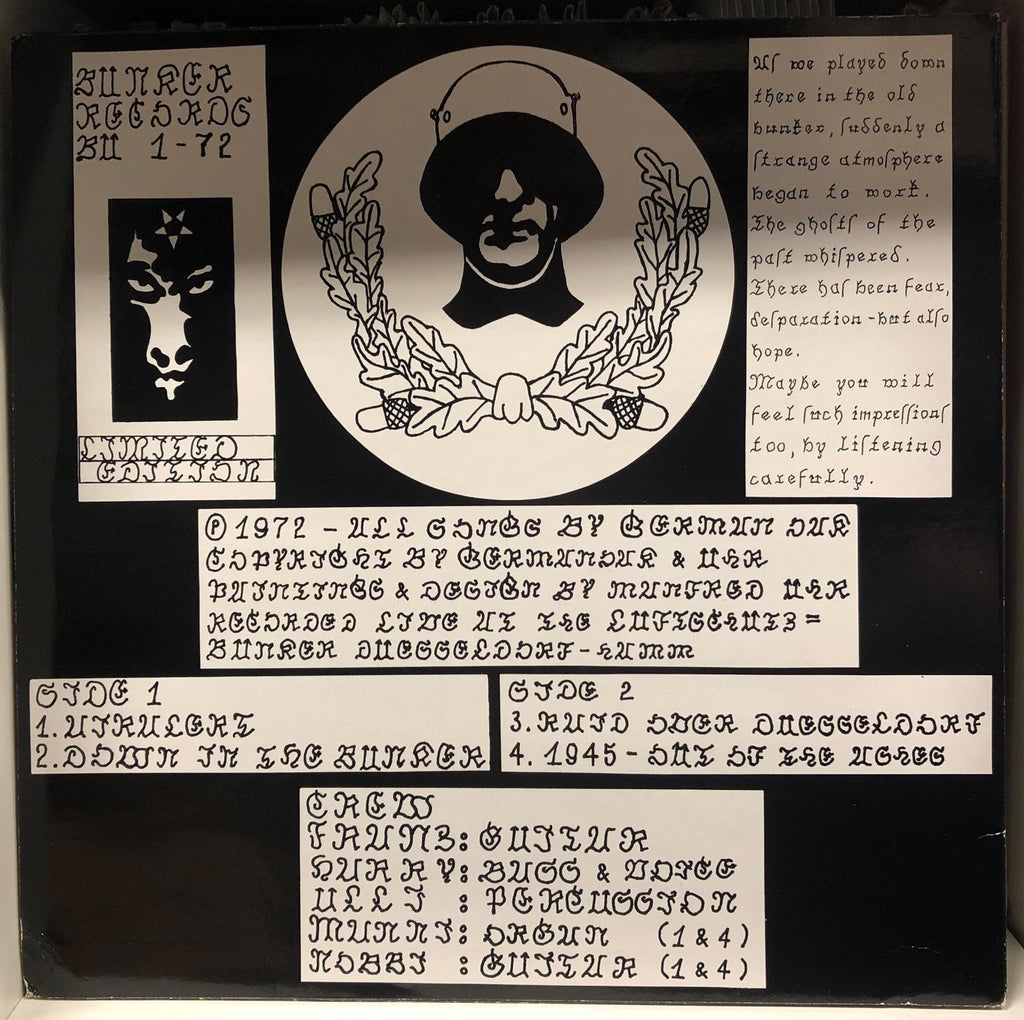 BUNKER
RECORDS
BU 1-72
LIMITED
EDITION
As we played down
there in the old
bunker, suddenly a
strange atmosphere
began to work.
The ghosts of the
past whispered.
There has been fear,
desparation - but also
hope.
Maybe you will
feel such impressions
too, by listening
carefully.
℗ 1972 - ALL SONGS BY GERMAN OAK
COPYRIGHT BY GERMANOAK & UHR
PAINTINGS & DESIGN BY MANFRED UHR
RECORDED LIVE AT THE LUFTSCHUTZ=
BUNKER DUESSELDORF-HAMM
SIDE 1
1. AIRALERT
2. DOWN IN THE BUNKER
SIDE 2
3. RAID OVER DUESSELDORF
4. 1945 - OUT OF THE ASHES
CREW
FRANZ: GUITAR
HARRY: BASS & VOICE
ULLI : PERCUSSION
MANNI: ORGAN (1 & 4)
NOBBI : GUITAR (1 & 4)